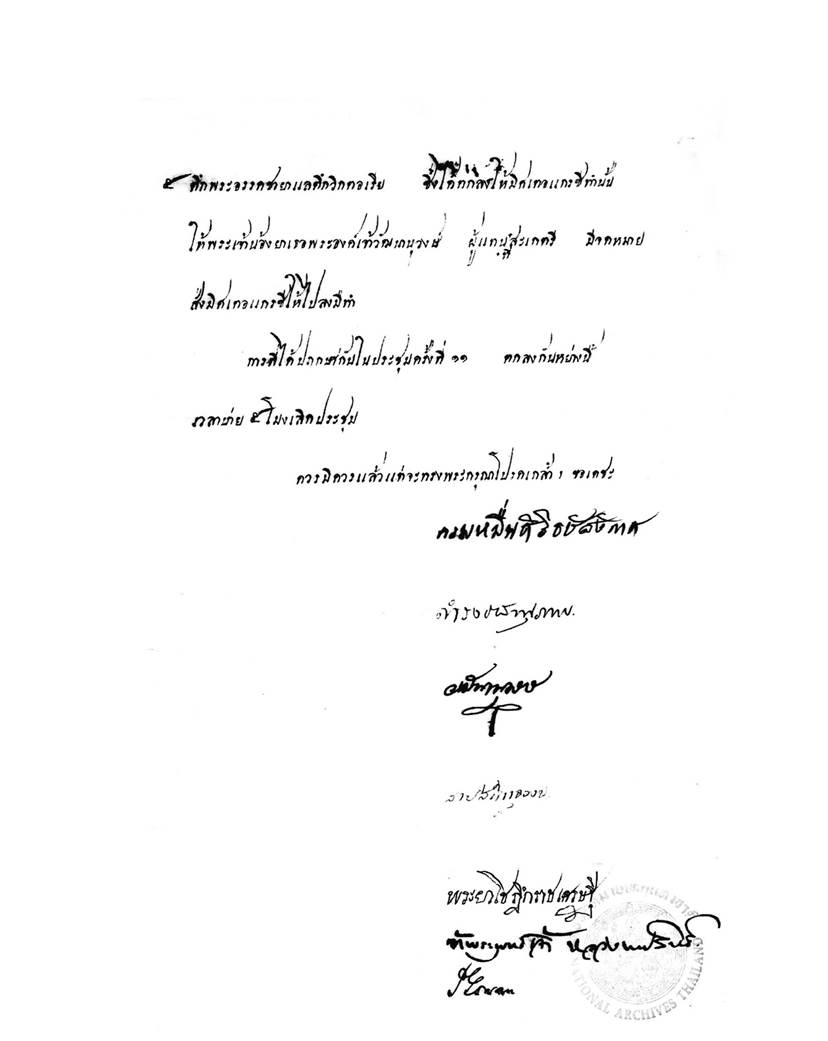 ๕ ตึกพระอรรคชายาแลตึกวิกตอเรีย ซึ่งได้ตกลงให้มิศเตอแกรซีทำนั้น
ให้พระเจ้าน้องยาเธอพระองค์เจ้าวัฒนานุวงษ์ ผู้แทน มีจดหมาย
สั่งมิศเตอแกรซีให้ไปลงมือทำ
การที่ได้ปฤกษากันในประชุมครั้งที่ ๑๑ ตกลงกันหย่างนี้
เวลาบ่าย ๕ โมงเลิกประชุม
ควรมิควรแล้วแต่จะทรงพระกรุณาโปรดเกล้า ๆ ขอเดชะ
กรมหมื่นศิริธัชสังกาศ
ดำรงราชานุภาพ
วัฒนานุวงษ์
พระยาโชฎึกราชเศรษฐี
NATIONAL ARCHIVES THAILAND